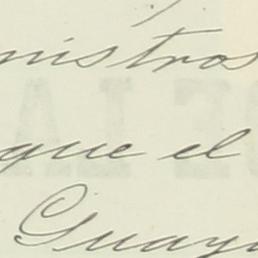 nistros
que el
Guay